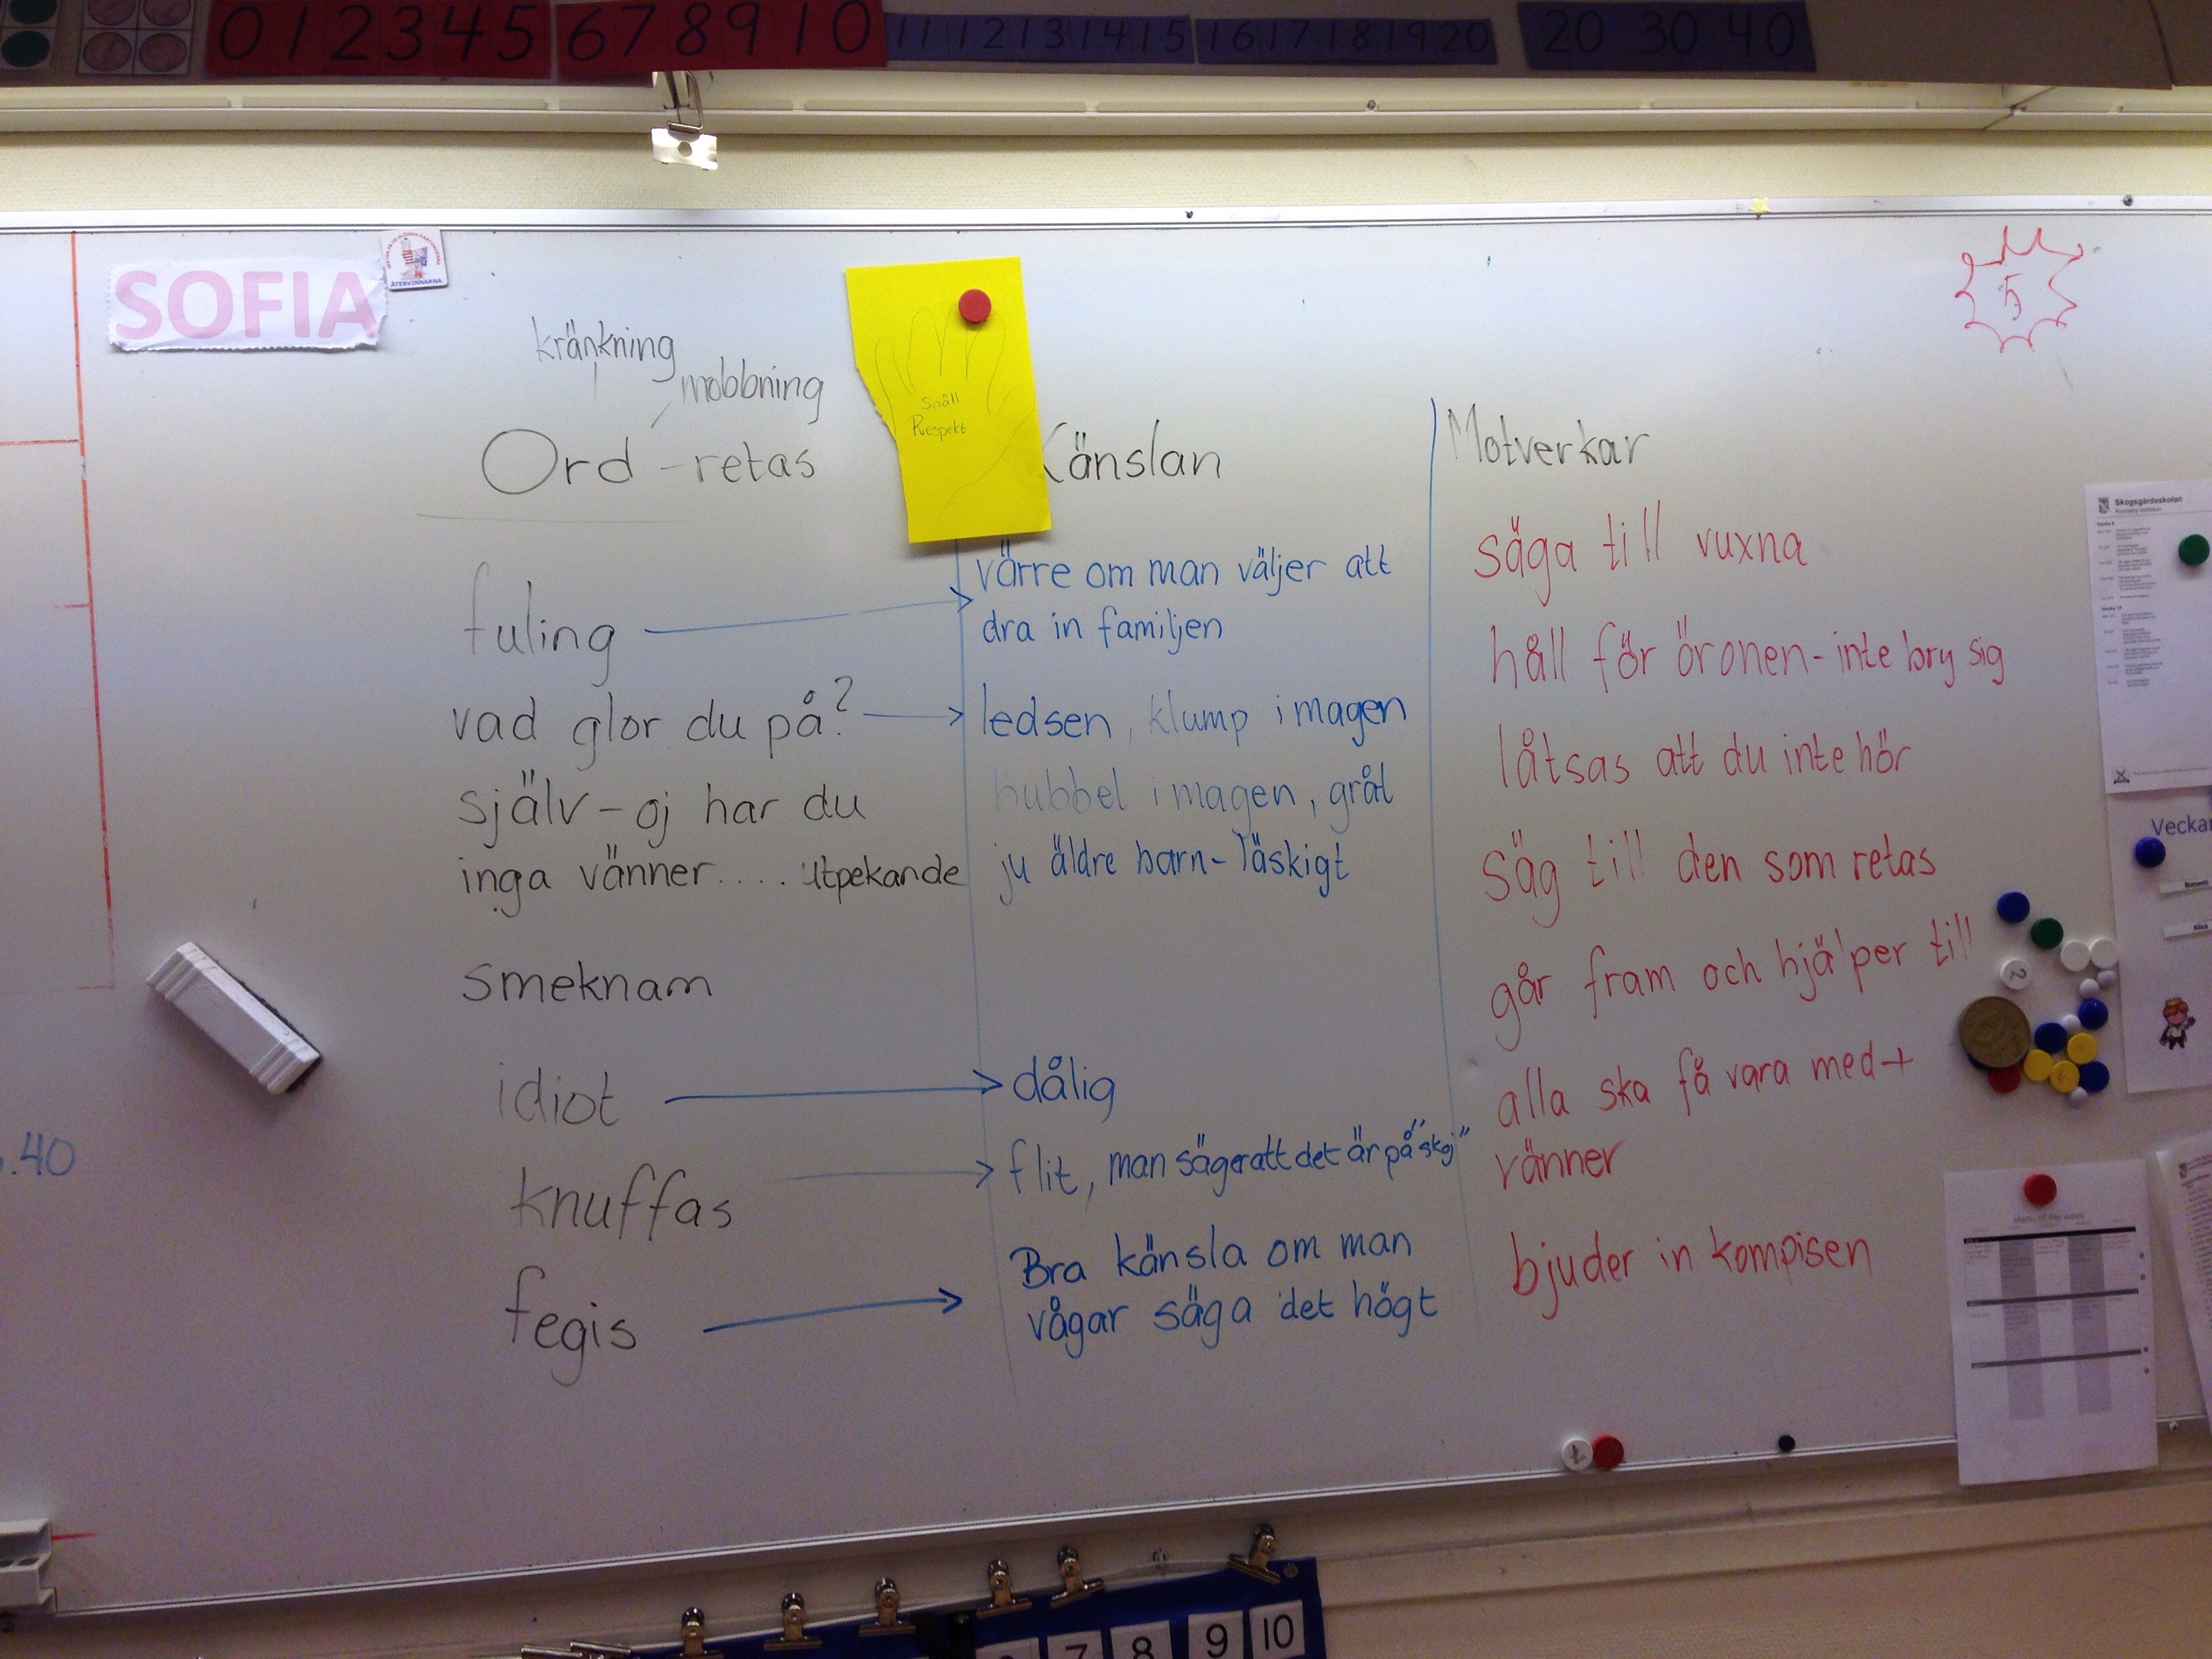 0 1 2 3 4 5 6 7 8 9 10 11 12 13 14 15 16 17 18 19 20 20 30 40
SOFIA
ÅTERVINNARNA
5
kränkning
mobbning
Snäll
Respekt
Ord - retas
Känslan
Motverkar
fuling
värre om man väljer att
dra in familjen
vad glor du på?
ledsen, klump i magen
själv - oj har du
bubbel i magen, gråt
inga vänner.... utpekande
ju äldre barn - läskigt
smeknam
idiot
dålig
knuffas
flit, man säger att det är på "skoj"
fegis
Bra känsla om man
vågar säga det högt
säga till vuxna
håll för öronen - inte bry sig
låtsas att du inte hör
säg till den som retas
går fram och hjälper till
alla ska få vara med +
vänner
bjuder in kompisen
Skogsgårdsskolan
Ronneby kommun
Veckan
2
.40
7 8 9 10